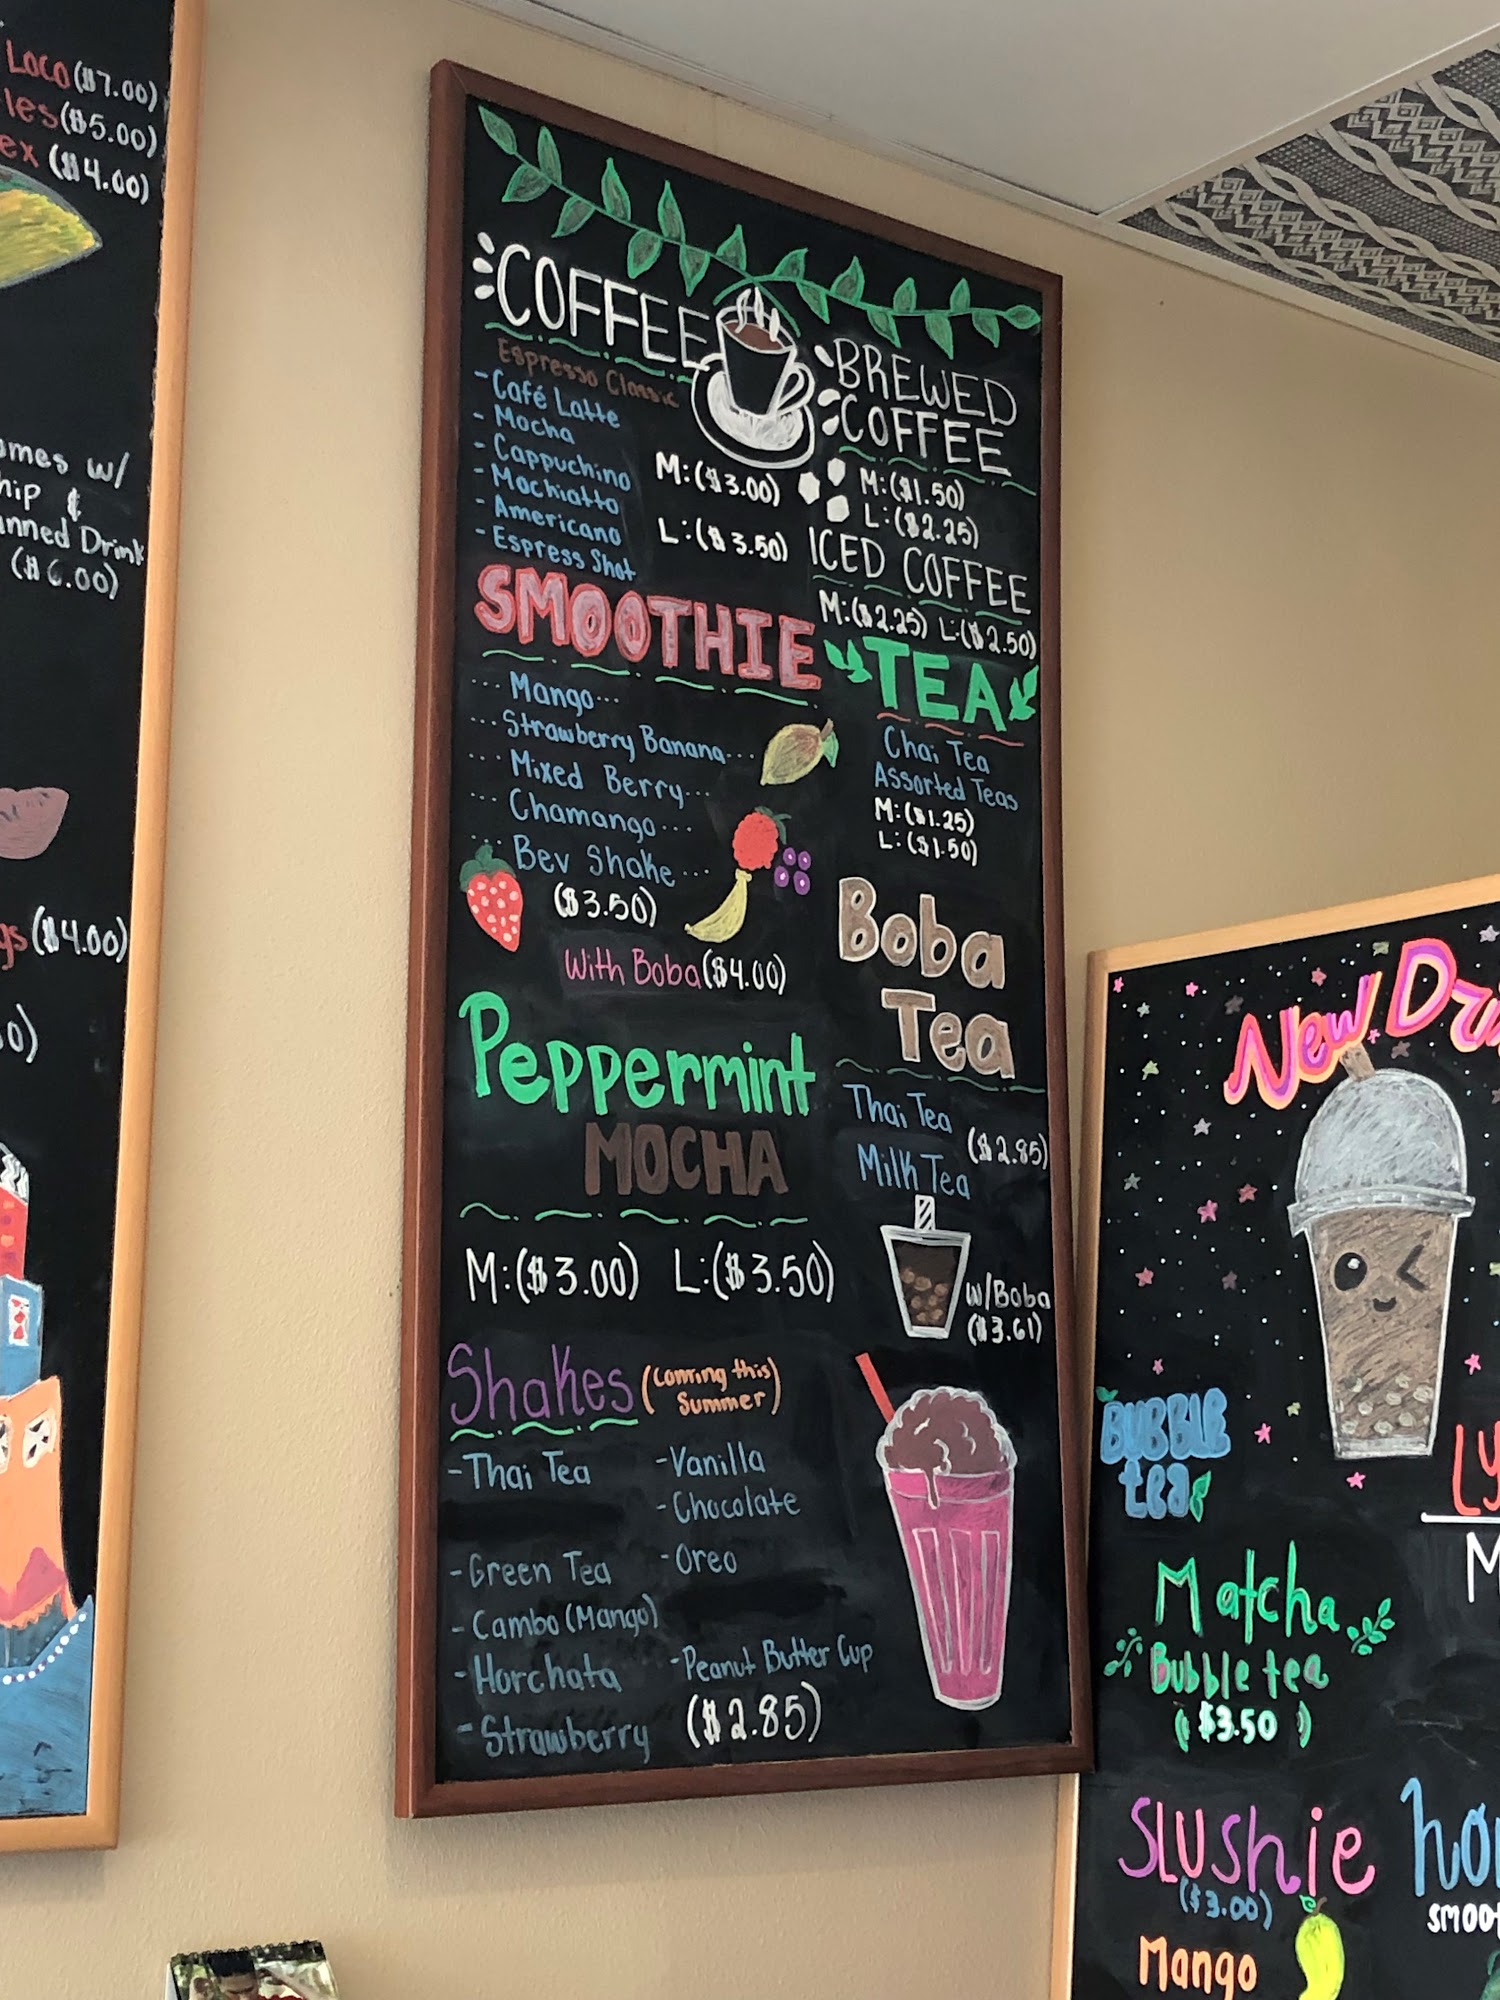 Loco ($7.00)
($5.00)
($4.00)
w/
&
Drink
($6.00)
($4.00)
COFFEE
Espresso Classic
- Café Latte
- Mocha
- Cappuchino
- Mochiatto
- Americano
- Espress Shot
M:($3.00)
L:($3.50)
BREWED
COFFEE
M:($1.50)
L:($2.25)
ICED COFFEE
M:($2.25) L:($2.50)
SMOOTHIE
... Mango...
... Strawberry Banana...
... Mixed Berry...
... Chamango...
... Bev Shake...
($3.50)
With Boba ($4.00)
TEA
Chai Tea
Assorted Teas
M:($1.25)
L:($1.50)
Boba
Tea
Thai Tea
($2.85)
Milk Tea
w/Boba
($3.61)
Peppermint
MOCHA
M:($3.00) L:($3.50)
Shakes (Coming this
Summer)
- Thai Tea
- Green Tea
- Cambo (Mango)
- Horchata
- Strawberry
- Vanilla
- Chocolate
- Oreo
- Peanut Butter Cup
($2.85)
New
BUBBLE
tea
Matcha
Bubble tea
($3.50)
Slushie
($3.00)
Mango